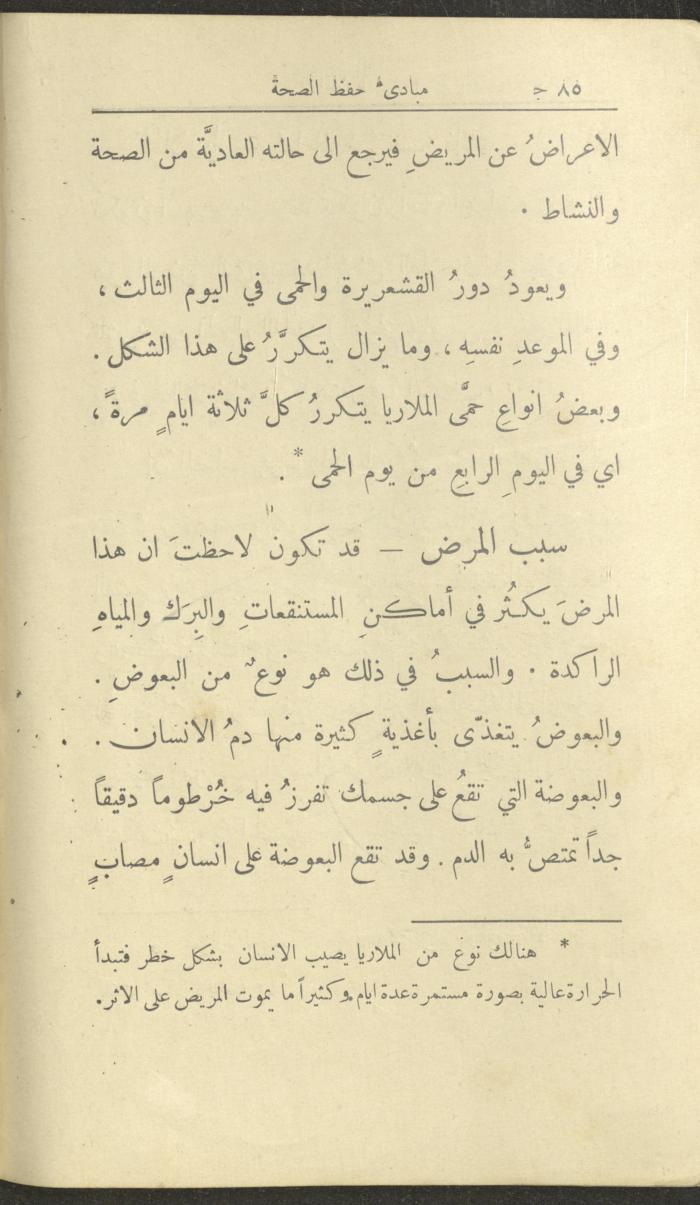 ٨٥ ج مبادىء حفظ الصحة
الاعراضُ عن المريضِ فيرجع الى حالته العاديَّة من الصحة
والنشاط .
ويعودُ دورُ القشعريرة والحمى في اليوم الثالث ،
وفي الموعدِ نفسهِ ، وما يزال يتكرَّرُ على هذا الشكل .
وبعضُ انواعِ حمَّى الملاريا يتكررُ كلَّ ثلاثة ايامٍ مرةً ،
اي في اليومِ الرابعِ من يوم الحمى * .
سبب المرض — قد تكون لاحظتَ ان هذا
المرضَ يكثُر في أماكنِ المستنقعاتِ والبِرَك والمياهِ
الراكدة . والسببُ في ذلك هو نوعٌ من البعوضِ .
والبعوضُ يتغذّى بأغذيةٍ كثيرة منها دمُ الانسان .
والبعوضة التي تقعُ على جسمك تفرزُ فيه خُرْطوماً دقيقاً
جداً تمتصُّ به الدم . وقد تقع البعوضة على انسانٍ مصابٍ
* هنالك نوع من الملاريا يصيب الانسان بشكل خطر فتبدأ
الحرارة عالية بصورة مستمرة عدة ايام. وكثيراً ما يموت المريض على الاثر.